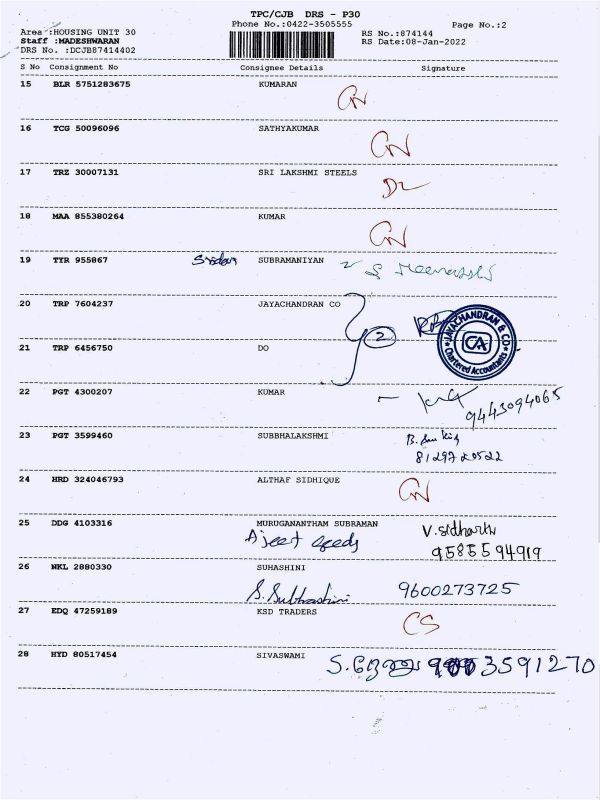 TPC/CJB DRS - P30
Phone No.:0422-3505555
Page No.:2
Area :HOUSING UNIT 30
RS No.:874144
Staff :MADESHWARAN
RS Date:08-Jan-2022
DRS No. :DCJB87414402
S No Consignment No Consignee Details Signature
15 BLR 5751283675 KUMARAN
CN
16 TCG 50096096 SATHYAKUMAR
CN
17 TRZ 30007131 SRI LAKSHMI STEELS
DL
18 MAA 855380264 KUMAR
CN
19 TYR 955867 SUBRAMANIYAN
20 TRP 7604237 JAYACHANDRAN CO
JAYACHANDRAN & CO
CA
Chartered Accountants
2
21 TRP 6456750 DO
22 PGT 4300207 KUMAR
9443094065
23 PGT 3599460 SUBBHALAKSHMI
8129720522
24 HRD 324046793 ALTHAF SIDHIQUE
CN
25 DDG 4103316 MURUGANANTHAM SUBRAMAN V.Sidharth
Ajeet seeds 9585594919
26 NKL 2880330 SUHASHINI
S.Subhashini 9600273725
27 EDQ 47259189 KSD TRADERS
CS
28 HYD 80517454 SIVASWAMI